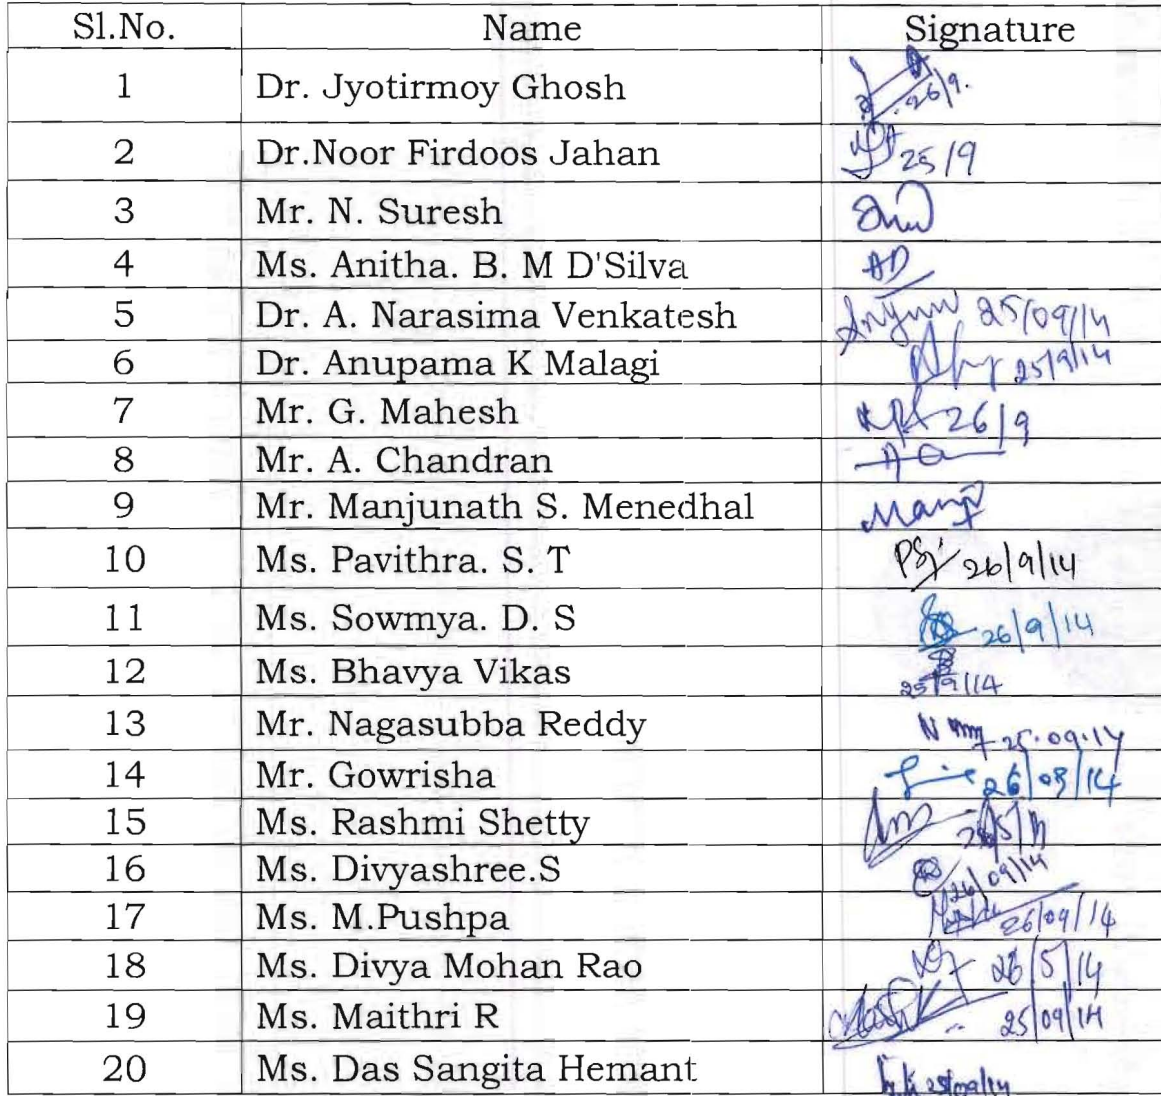 Sl.No. Name Signature
1 Dr. Jyotirmoy Ghosh 26/9.
2 Dr.Noor Firdoos Jahan 25/9
3 Mr. N. Suresh
4 Ms. Anitha. B. M D'Silva AD
5 Dr. A. Narasima Venkatesh 25/09/14
6 Dr. Anupama K Malagi 25/9/14
7 Mr. G. Mahesh 26/9
8 Mr. A. Chandran
9 Mr. Manjunath S. Menedhal
10 Ms. Pavithra. S. T 26/9/14
11 Ms. Sowmya. D. S 26/9/14
12 Ms. Bhavya Vikas 25/9/14
13 Mr. Nagasubba Reddy 25.09.14
14 Mr. Gowrisha 26/09/14
15 Ms. Rashmi Shetty
16 Ms. Divyashree.S 26/09/14
17 Ms. M.Pushpa 26/09/14
18 Ms. Divya Mohan Rao 26/5/14
19 Ms. Maithri R 25/09/14
20 Ms. Das Sangita Hemant 25/09/14